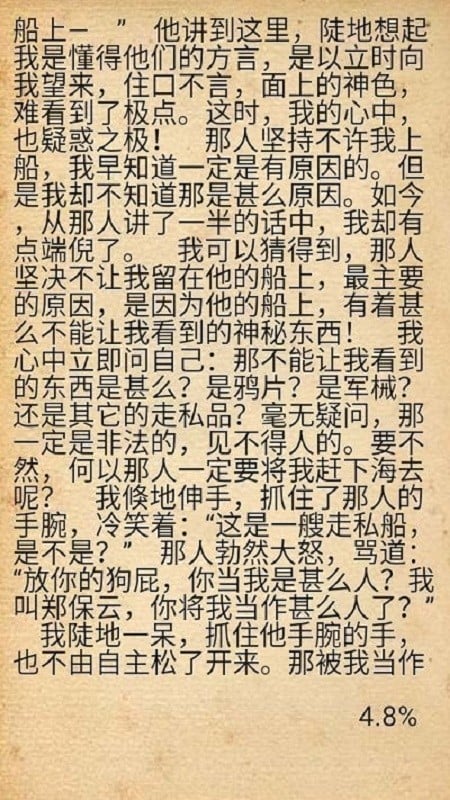 船上－　”　他讲到这里，陡地想起
我是懂得他们的方言，是以立时向
我望来，住口不言，面上的神色，
难看到了极点。这时，我的心中，
也疑惑之极！　那人坚持不许我上
船，我早知道一定是有原因的。但
是我却不知道那是甚么原因。如今
，从那人讲了一半的话中，我却有
点端倪了。　我可以猜得到，那人
坚决不让我留在他的船上，最主要
的原因，是因为他的船上，有着甚
么不能让我看到的神秘东西！　我
心中立即问自己：那不能让我看到
的东西是甚么？是鸦片？是军械？
还是其它的走私品？毫无疑问，那
一定是非法的，见不得人的。要不
然，何以那人一定要将我赶下海去
呢？　我倏地伸手，抓住了那人的
手腕，冷笑着：“这是一艘走私船，
是不是？”　那人勃然大怒，骂道：
“放你的狗屁，你当我是甚么人？我
叫郑保云，你将我当作甚么人了？”
　我陡地一呆，抓住他手腕的手，
也不由自主松了开来。那被我当作
4.8%